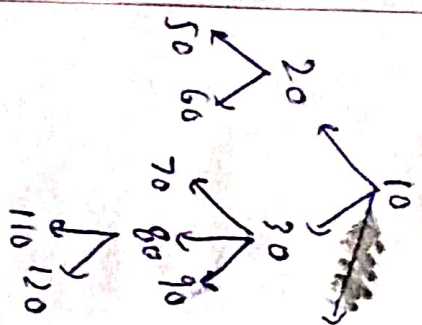 10
20 30
50 60 70 80 90
110 120